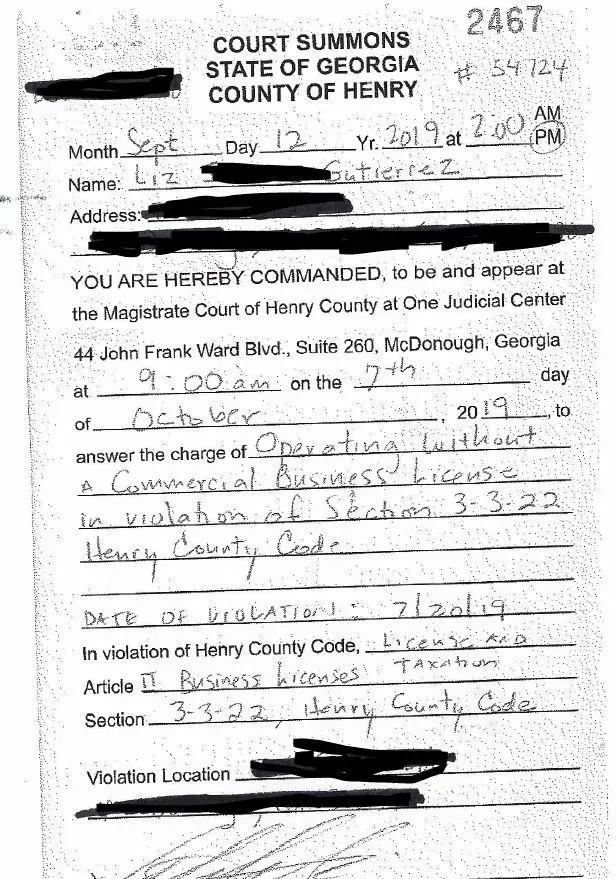 2467
COURT SUMMONS
STATE OF GEORGIA
COUNTY OF HENRY
# 54724
Month Sept Day 12 Yr. 2019 at 2:00 AM
PM
Name: Liz Gutierrez
Address:
YOU ARE HEREBY COMMANDED, to be and appear at
the Magistrate Court of Henry County at One Judicial Center
44 John Frank Ward Blvd., Suite 260, McDonough, Georgia
at 9:00 am on the 7th day
of October, 2019, to
answer the charge of Operating Without
A Commercial Business License
in violation of Section 3-3-22
Henry County Code
DATE OF VIOLATION: 7/20/19
In violation of Henry County Code, License AND
TAXATION
Article II Business Licenses
Section 3-3-22, Henry County Code
Violation Location